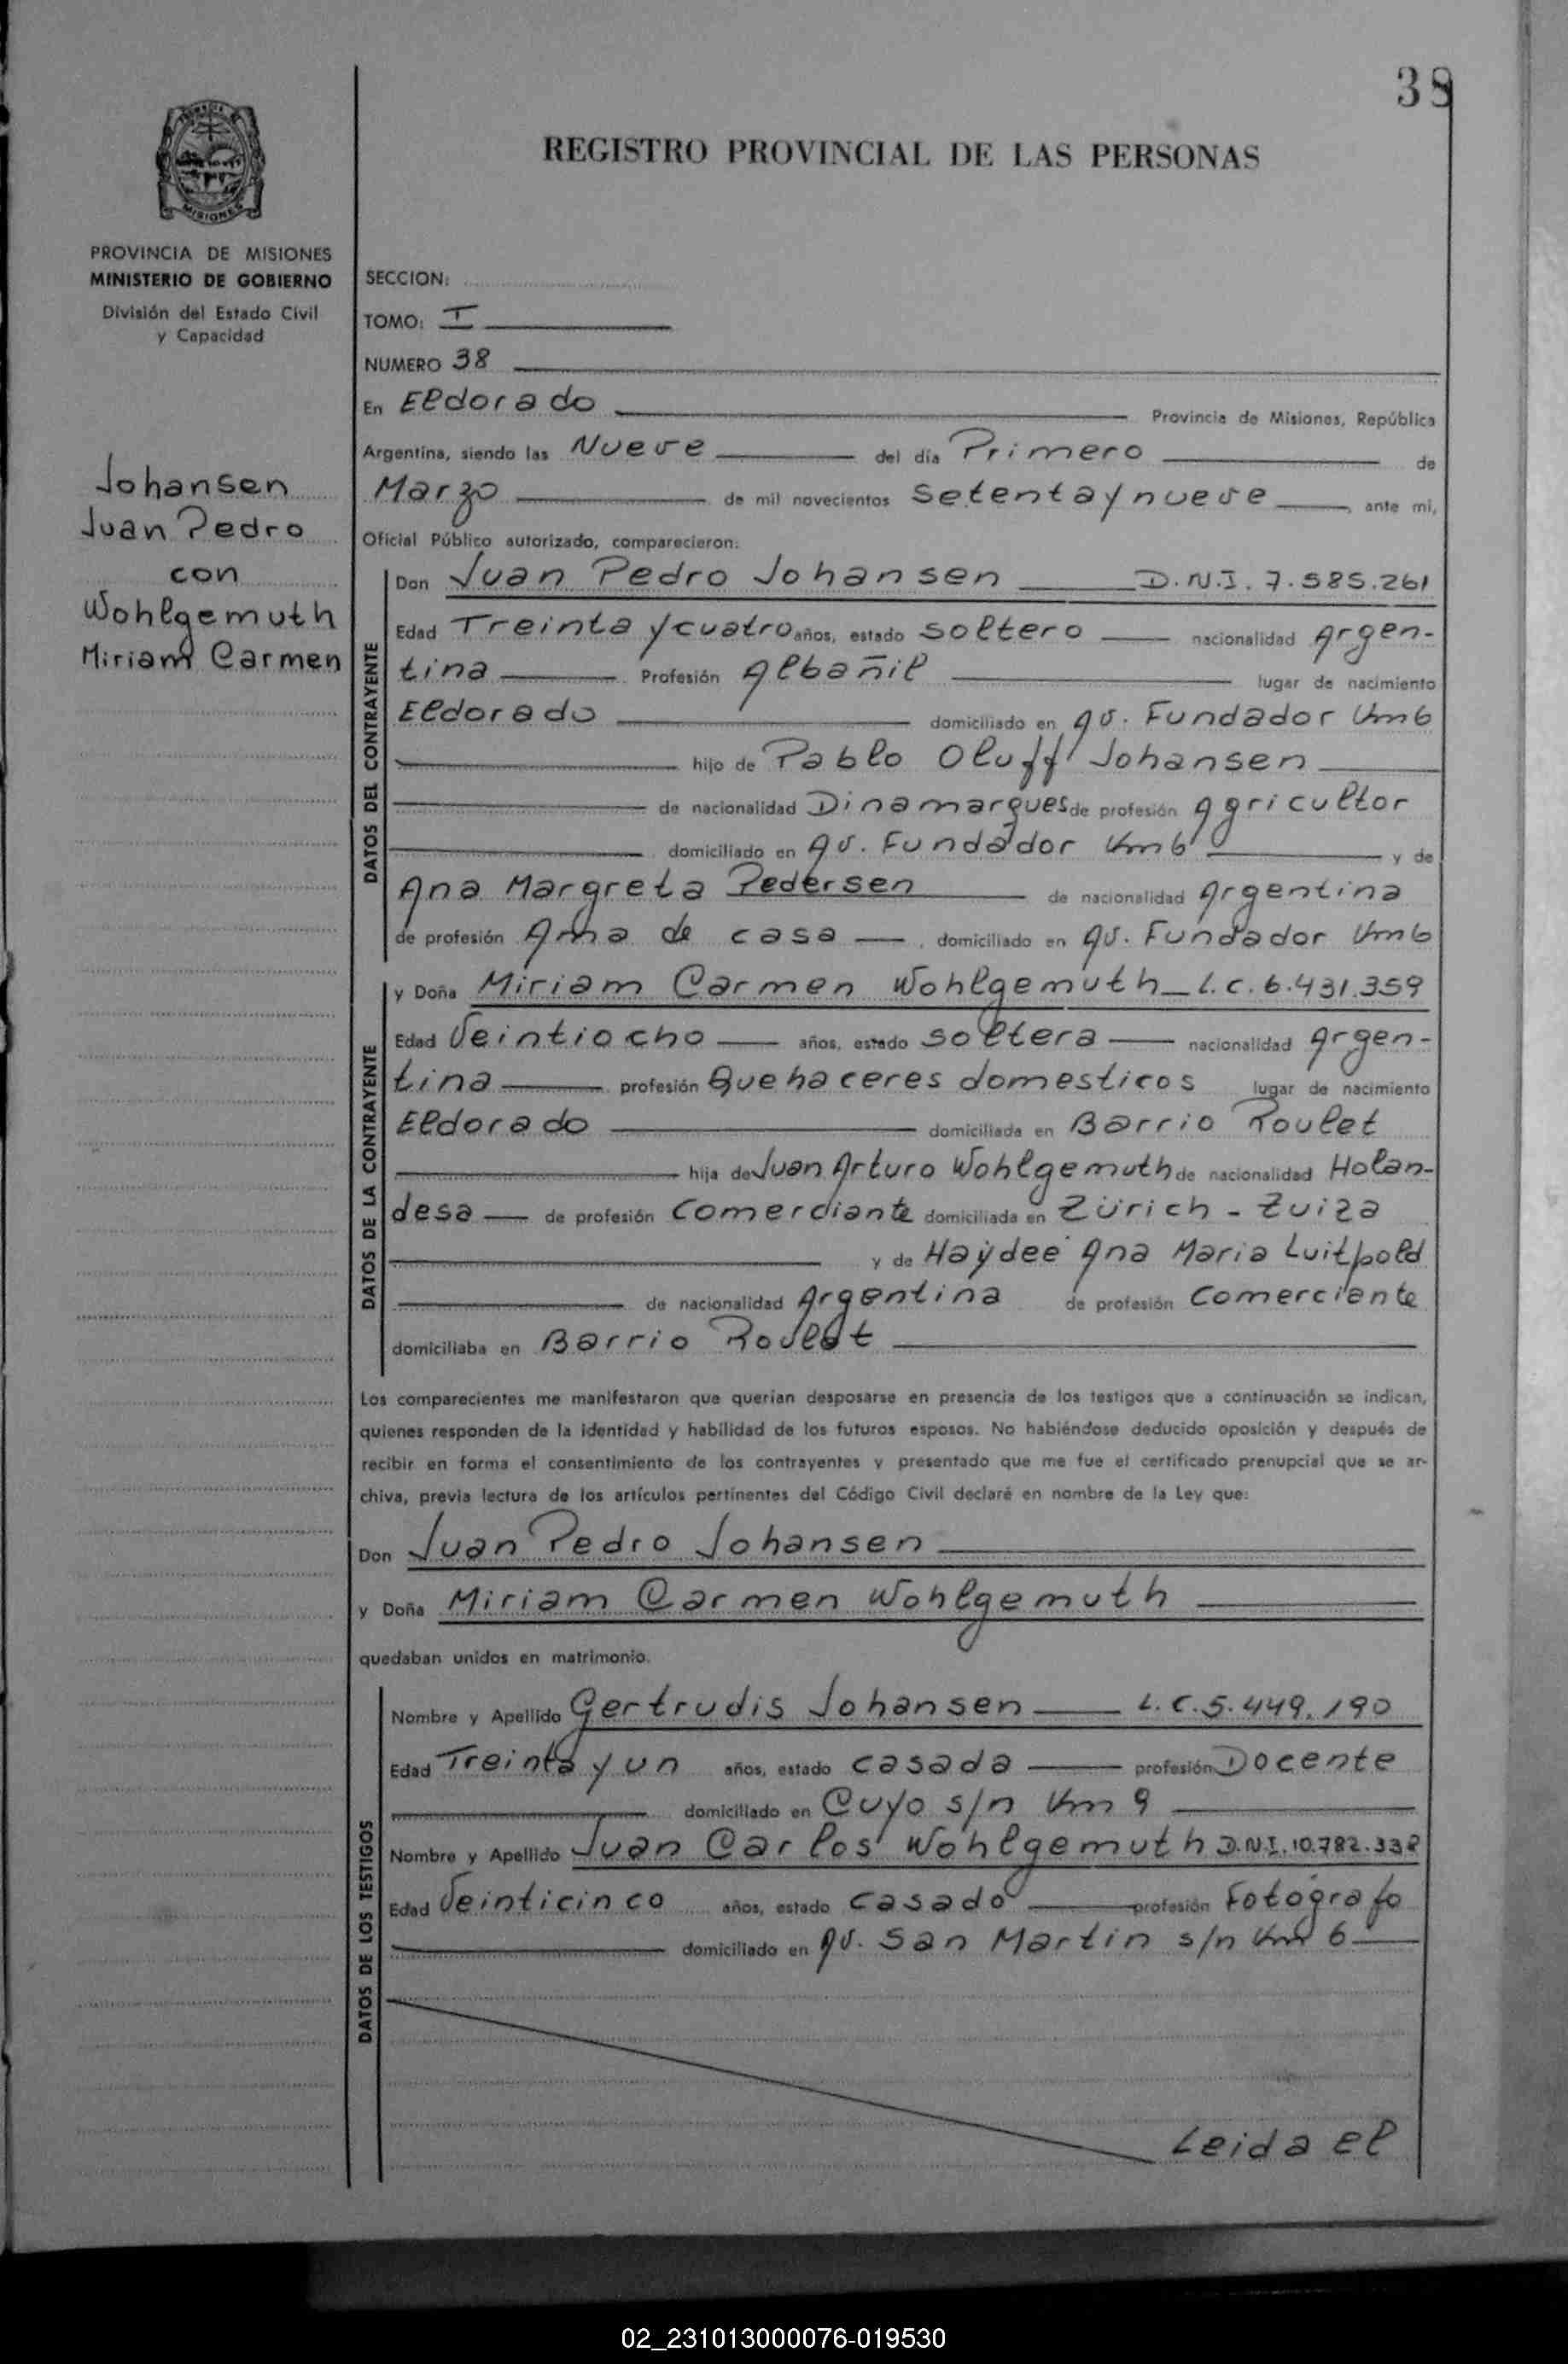 38
REGISTRO PROVINCIAL DE LAS PERSONAS
MISIONES
PROVINCIA DE MISIONES
MINISTERIO DE GOBIERNO
División del Estado Civil
y Capacidad
Johansen
Juan Pedro
con
Wohlgemuth
Miriam Carmen
SECCION:
TOMO: I
NUMERO 38
En Eldorado Provincia de Misiones, República
Argentina, siendo las Nueve del día Primero de
Marzo de mil novecientos setenta y nueve, ante mi,
Oficial Público autorizado, comparecieron:
DATOS DEL CONTRAYENTE
Don Juan Pedro Johansen D.N.I. 7.585.261
Edad Treinta y cuatro años, estado soltero nacionalidad Argen-
tina Profesión Albañil lugar de nacimiento
Eldorado domiciliado en Av. Fundador Km 6
hijo de Pablo Oluff Johansen
de nacionalidad Dinamarques de profesión Agricultor
domiciliado en Av. Fundador Km 6 y de
Ana Margreta Pedersen de nacionalidad Argentina
de profesión Ama de casa, domiciliado en Av. Fundador Km 6
DATOS DE LA CONTRAYENTE
y Doña Miriam Carmen Wohlgemuth L.C. 6.431.359
Edad Veintiocho años, estado soltera nacionalidad Argen-
tina profesión Quehaceres domesticos lugar de nacimiento
Eldorado domiciliada en Barrio Roulet
hija de Juan Arturo Wohlgemuth de nacionalidad Holan-
desa de profesión Comerciante domiciliada en Zürich - Zuiza
y de Haydee Ana Maria Luitpold
de nacionalidad Argentina de profesión Comerciente
domiciliaba en Barrio Roulet
Los comparecientes me manifestaron que querían desposarse en presencia de los testigos que a continuación se indican,
quienes responden de la identidad y habilidad de los futuros esposos. No habiéndose deducido oposición y después de
recibir en forma el consentimiento de los contrayentes y presentado que me fue el certificado prenupcial que se ar-
chiva, previa lectura de los artículos pertinentes del Código Civil declaré en nombre de la Ley que:
Don Juan Pedro Johansen
y Doña Miriam Carmen Wohlgemuth
quedaban unidos en matrimonio.
DATOS DE LOS TESTIGOS
Nombre y Apellido Gertrudis Johansen L.C. 5.449.190
Edad Treinta y un años, estado casada profesión Docente
domiciliado en Cuyo s/n Km 9
Nombre y Apellido Juan Carlos Wohlgemuth D.N.I. 10.782.338
Edad Veinticinco años, estado casado profesión Fotógrafo
domiciliado en Av. San Martin s/n Km 6
Leida el
02_231013000076-019530